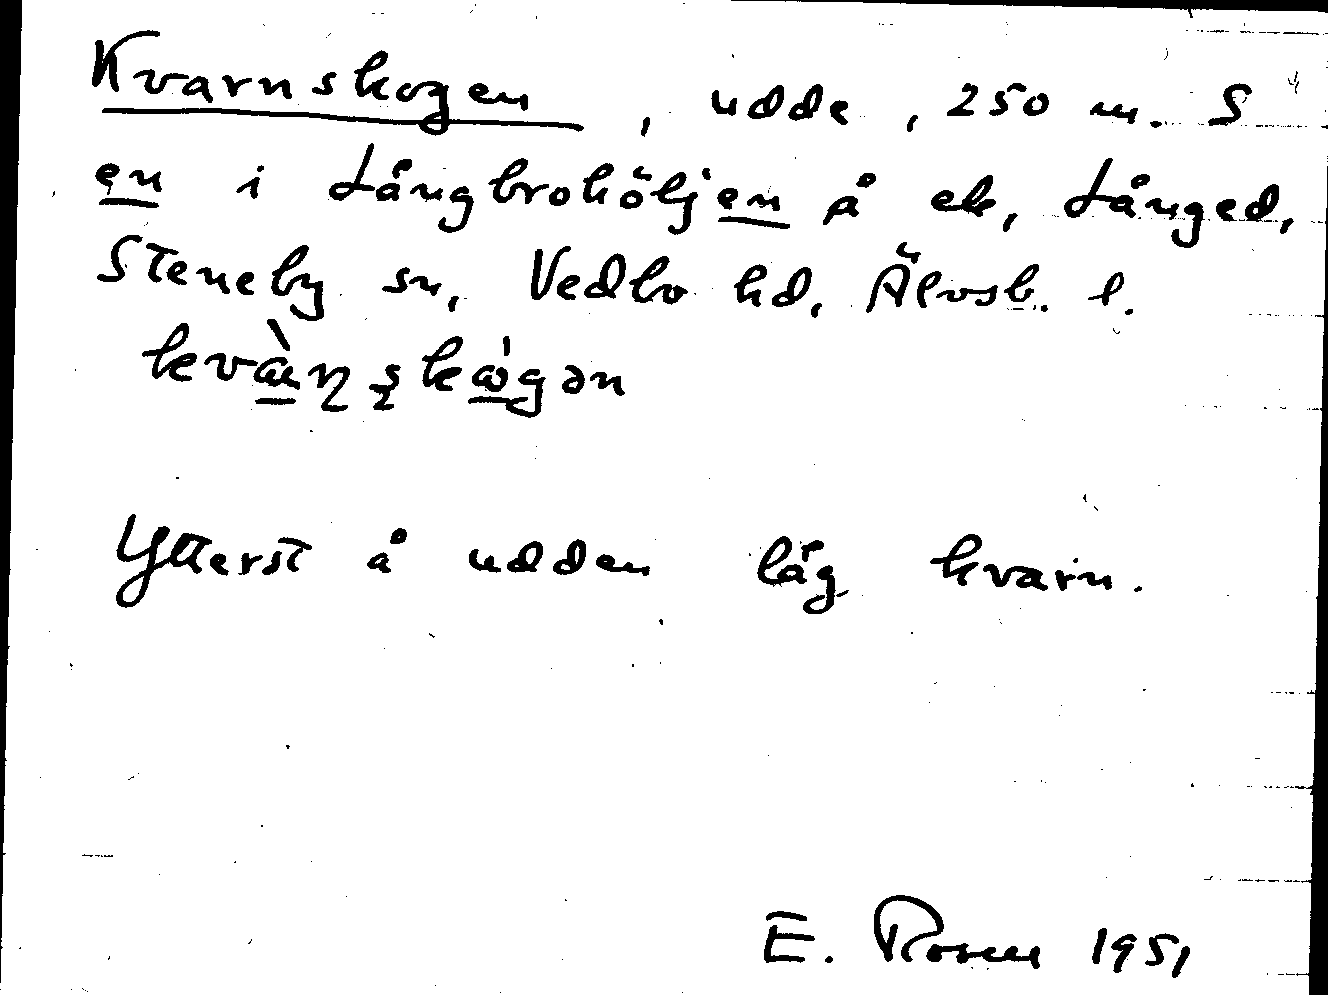 Kvarnskogen, udde, 250 m. S
en i Långbrohöljen å ek, Långed,
Steneby sn, Vedbo hd, Älvsb. l.
Ytterst å udden låg kvarn.
E. Rosen 1951